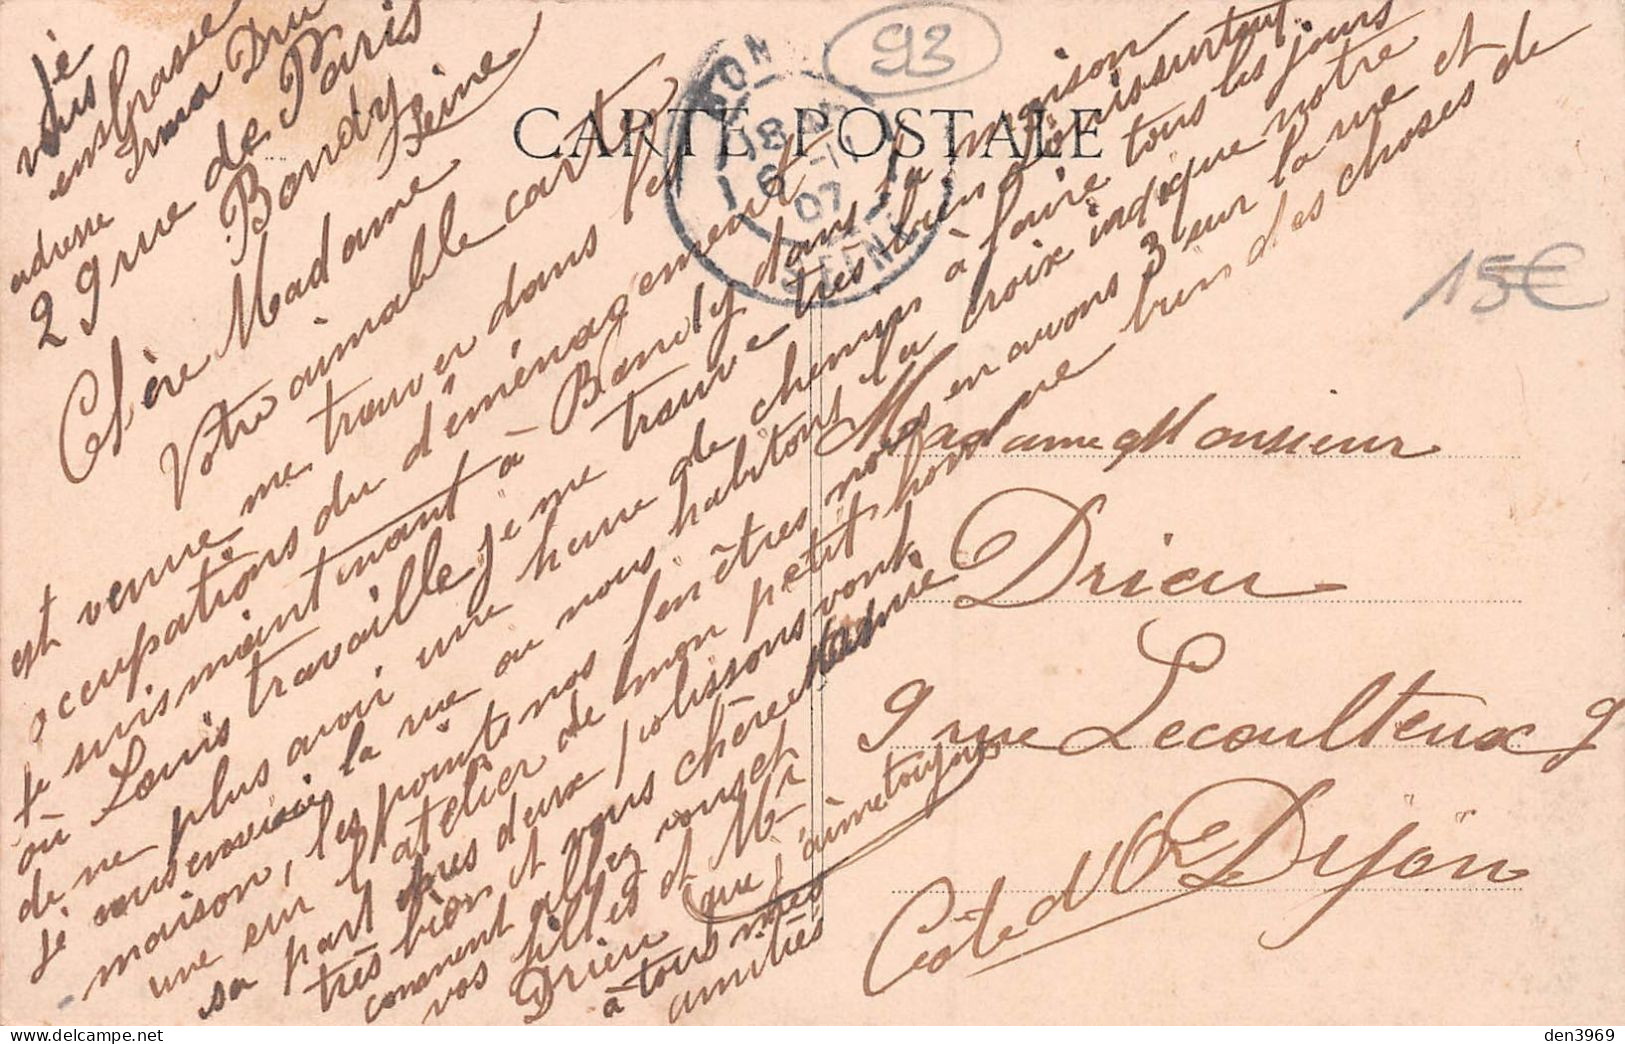 CARTE POSTALE
93
15€
18 30
6 -11
07
SEINE
Je
vous
embrasse
Irma Dru
adresse
29 rue de Paris
Bondy
Seine
Chère Madame
Votre aimable carte
est venue me trouver dans les
occupations du déménagement
je suis maintenant à Bondy dans la maison
où Louis travaille je me trouve très bien réjouissurtout
de ne plus avoir une heure de chemin à faire tous les jours
Je vous envoie la rue ou nous habitons la croix indique notre
maison, les points nos fenêtres nous en avons 3 sur la rue et
une sur l'atelier de mon petit homme bien des choses de
sa part mes deux polissons vont
très bien et vous chère Madame
comment allez vous et
vos filles et Mr
Drieu que j'aime toujours
à tous mes
amitiés
Madame Monsieur
Drieu
9 rue Lecoulteux 9
Dijon
Côte d'Or
den3969